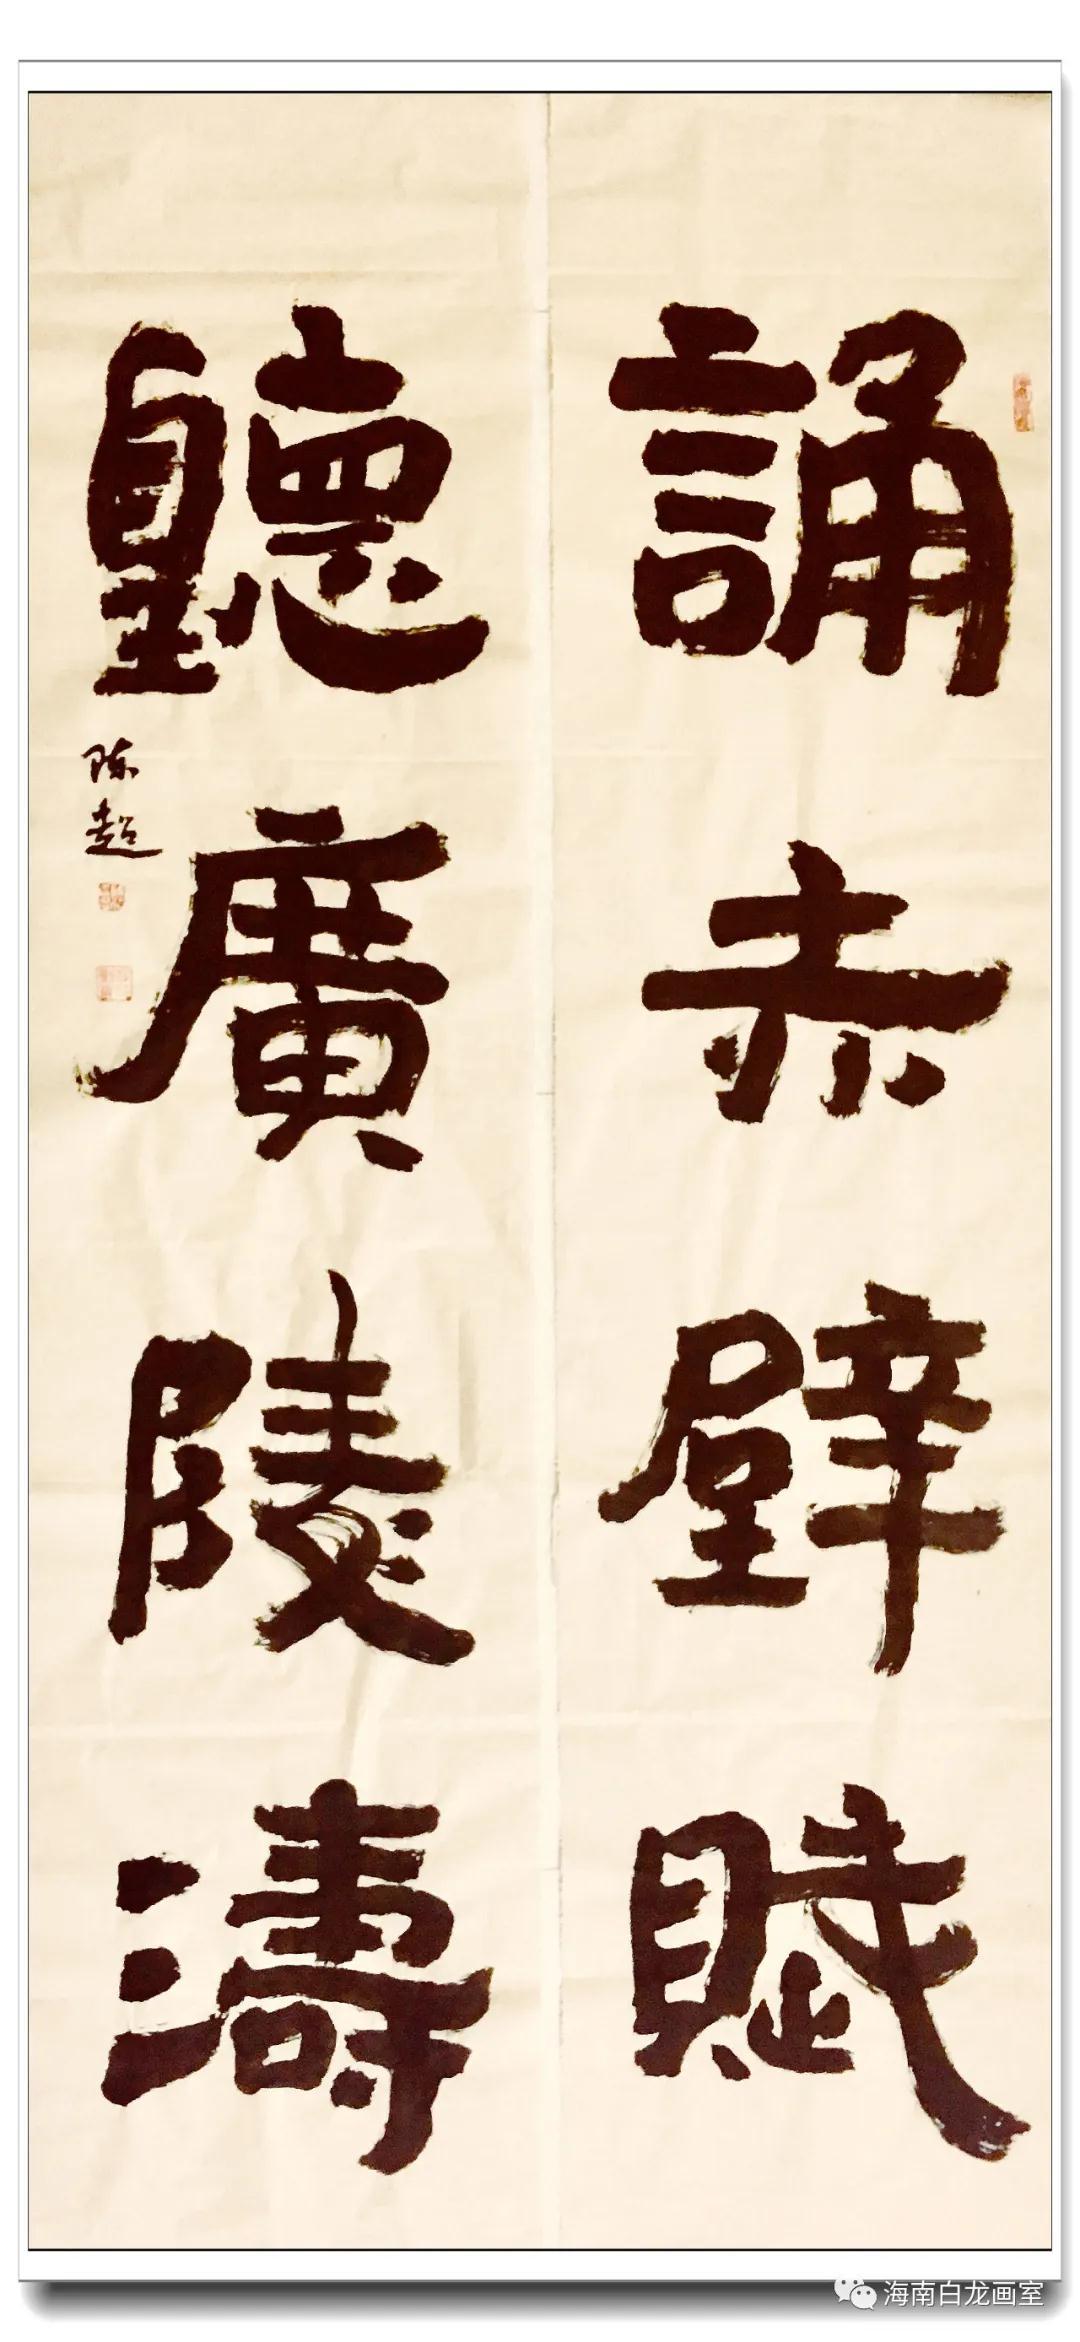 誦赤壁賦
聽廣陵濤
陈超
海南白龙画室